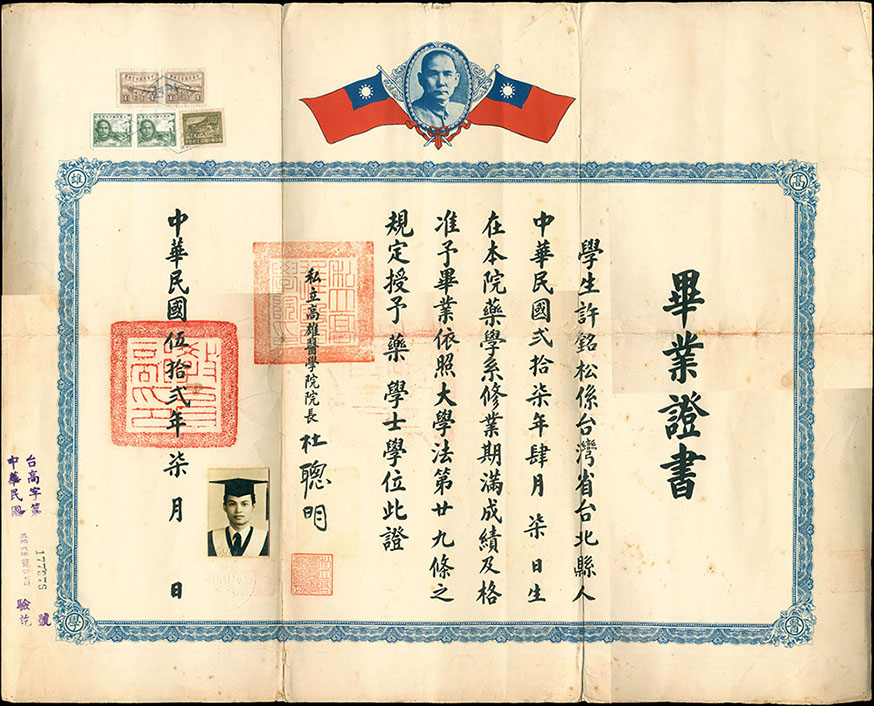 畢業證書
學生許銘松係台灣省台北縣人
中華民國貳拾柒年肆月柒日生
在本院藥學系修業期滿成績及格
准予畢業依照大學法第廿九條之
規定授予藥學士學位此證
私立高雄醫學院院長 杜聰明
中華民國伍拾貳年柒月 日
台高字第 號
中華民國 驗訖
高
雄
醫
學